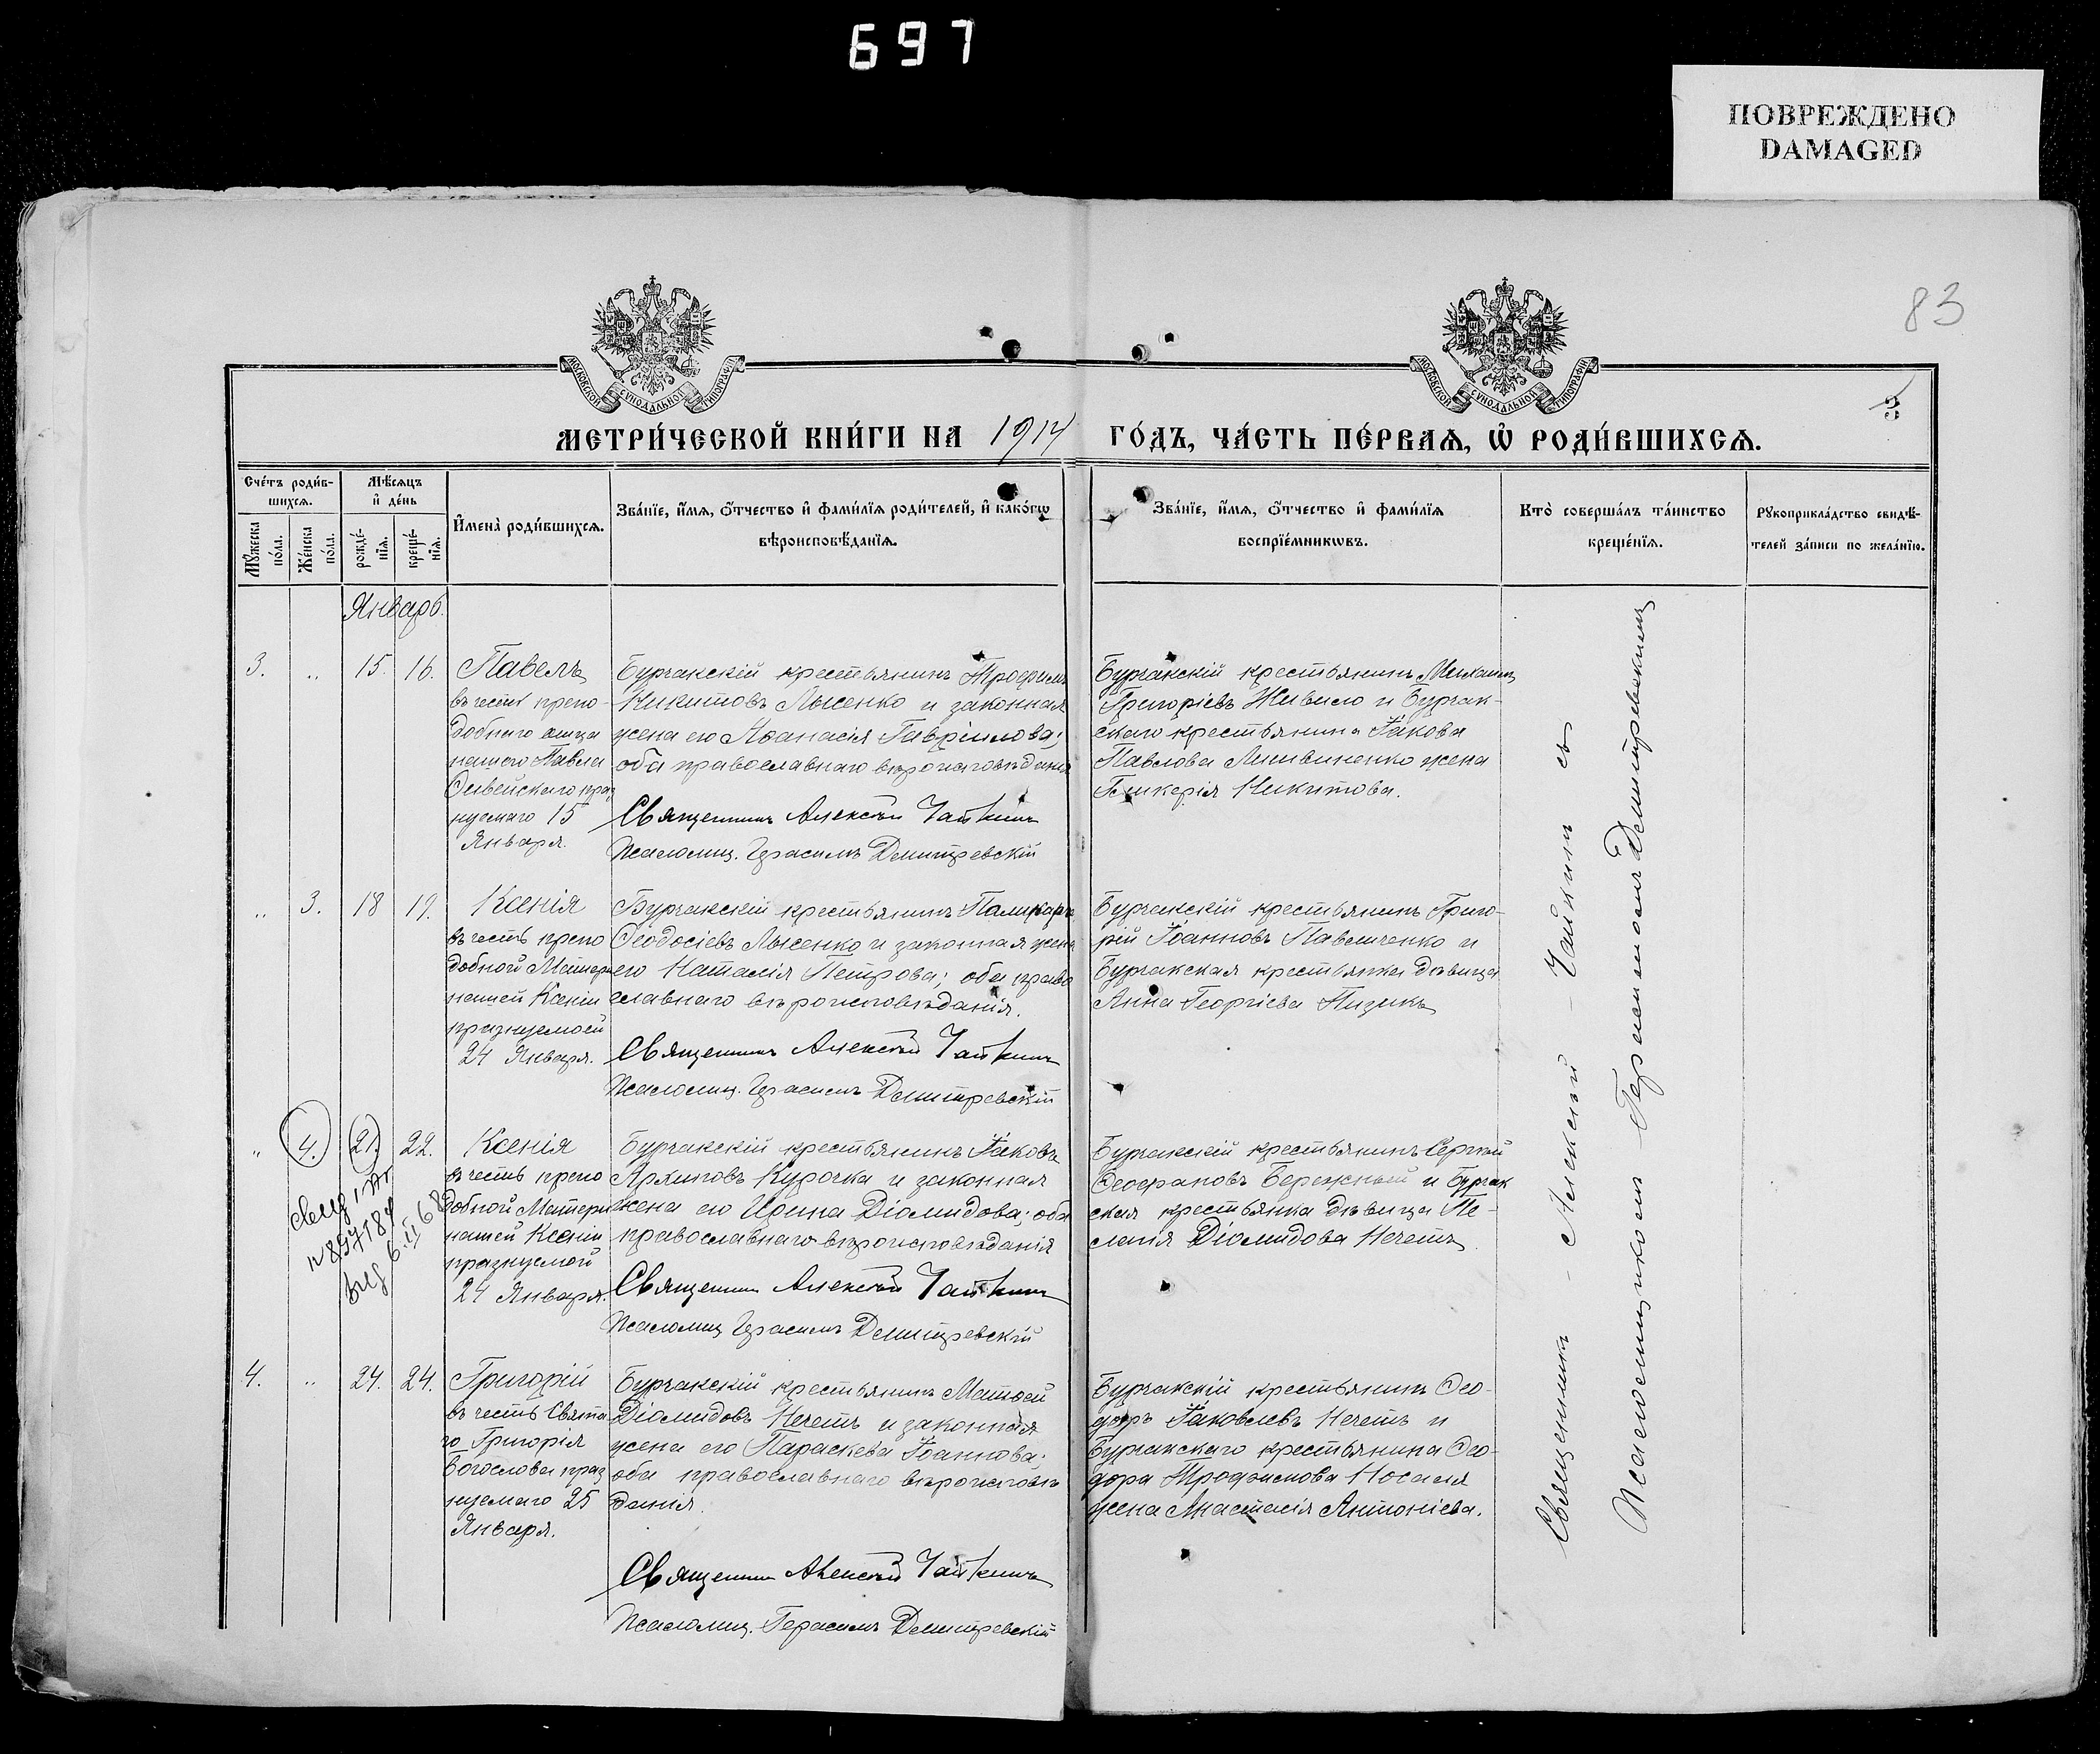 697
ПОВРЕЖДЕНО
DAMAGED
83
МОСКОВСКОЙ СѴНОДАЛЬНОЙ ТИПОГРАФІИ
МОСКОВСКОЙ СѴНОДАЛЬНОЙ ТИПОГРАФІИ
3
МЕТРИ́ЧЕСКОЙ КНИ́ГИ НА 1914 ГО́ДЪ, ЧА́СТЬ ПЕ́РВАЯ, Ѡ҆ РОДИ́ВШИХСЯ.
Сче́тъ роди́в-
шихся.
Мѣ́сяцъ
и҆ де́нь
Мꙋ́жеска
по́ла.
Же́нска
по́ла.
рожде́-
нїя.
креще́-
нїя.
И҆мена̀ роди́вшихся.
Зва́нїе, и҆́мя, ѻ҆́тчество и҆ фами́лїя роди́телей, и҆ како́гѡ
вѣроисповѣ́данїя.
Зва́нїе, и҆́мя, ѻ҆́тчество и҆ фами́лїя
воспрїе́мникѡвъ.
Кто̀ соверша́лъ та́инство
креще́нїя.
Рꙋкоприкла́дство свидѣ́-
телей за́писи по жела́нїю.
Январь.
3. „ 15. 16.
Павелъ
въ честь препо-
добнаго отца
нашего Павла
Фивейскаго праз
нуемаго 15
Января.
Бурчакскій крестьянинъ Трофимъ
Никитовъ Лысенко и законная
жена его Аѳанасія Гавріилова;
оба православнаго вѣроисповѣданія
Священникъ Алексѣй Чайкинъ
Псаломщ. Герасимъ Демитревскій
Бурчакскій крестьянинъ Михаилъ
Григоріевъ Живило и Бурчак-
скаго крестьянина Іакова
Павлова Литвиненко жена
Гликерія Никитова.
„ 3. 18 19.
Ксенія
въ честь препо
добной Матери
нашей Ксеніи
празнуемой
24 Января.
Бурчакскій крестьянинъ Поликарпъ
Ѳеодосіевъ Лысенко и законная жена
его Наталія Петрова; оба право
славнаго вѣроисповѣданія.
Священникъ Алексѣй Чайкинъ
Псаломщ. Герасимъ Демитревскій
Бурчакскій крестьянинъ Григо-
рій Іоанновъ Павличенко и
Бурчакская крестьянка дѣвица
Анна Георгіева Пизикъ
„ 4. 21. 22.
Ксенія
въ честь препо
добной Матери
нашей Ксеніи
празнуемой
24 Января.
Бурчакскій крестьянинъ Іаковъ
Архиповъ Курочка и законная
жена его Ирина Діомидова; оба
православнаго вѣроисповѣданія
Священникъ Алексѣй Чайкинъ
Псаломщ Герасимъ Демитревскій
Бурчакскій крестьянинъ Сергѣй
Ѳеофановъ Бережный и Бурчак
ская крестьянка дѣвица Пе-
лагія Діомидова Нечетъ
4. „ 24. 24.
Григорій
въ честь Свята
го Григорія
Богослова праз
нуемаго 25
Января.
Бурчакскій крестьянинъ Матѳей
Діомидовъ Нечетъ и законная
жена его Параскева Іоаннова;
оба православнаго вѣроисповѣ
данія.
Священникъ Алексѣй Чайкинъ
Псаломщ. Герасимъ Демитревскій
Бурчакскій крестьянинъ Ѳео-
доръ Іаковлевъ Нечетъ и
Бурчакскаго крестьянина Ѳео-
дора Трофимова Носаля
жена Анастасія Антоніева.
Священникъ - Алексѣй - Чайкинъ съ
Псаломщикомъ Герасимомъ Демитревскимъ